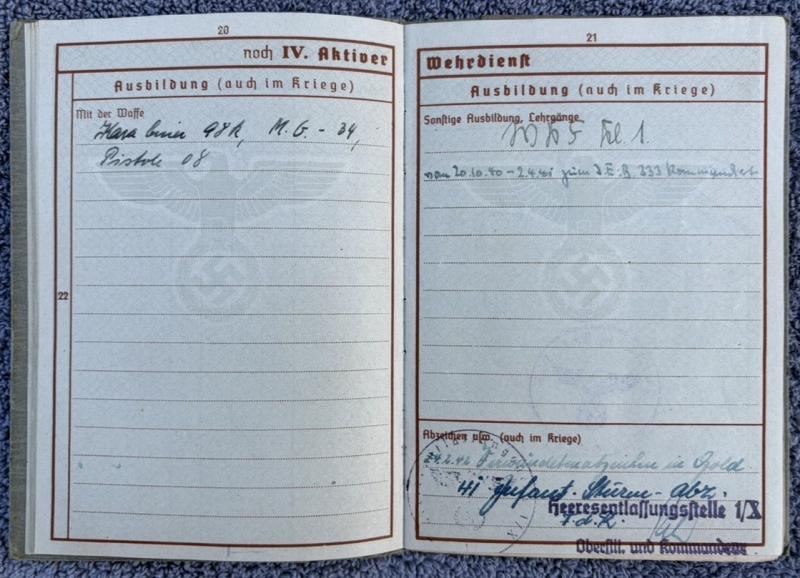 20
noch IV. Aktiver
Ausbildung (auch im Kriege)
Mit der Waffe
Karabiner 98k, M.G. - 34,
Pistole 08
22
21
Wehrdienst
Ausbildung (auch im Kriege)
Sonstige Ausbildung, Lehrgänge
Kl. 1.
von 20.10.40 - 2.4.41 zum I.E.B. 333 kommandiert
Abzeichen usw. (auch im Kriege)
Verwundetenabzeichen in Gold
41 Infant. Sturm-Abz.
Heeresentlassungsstelle 1/X
F.d.R.
Oberstlt. und Kommandeur